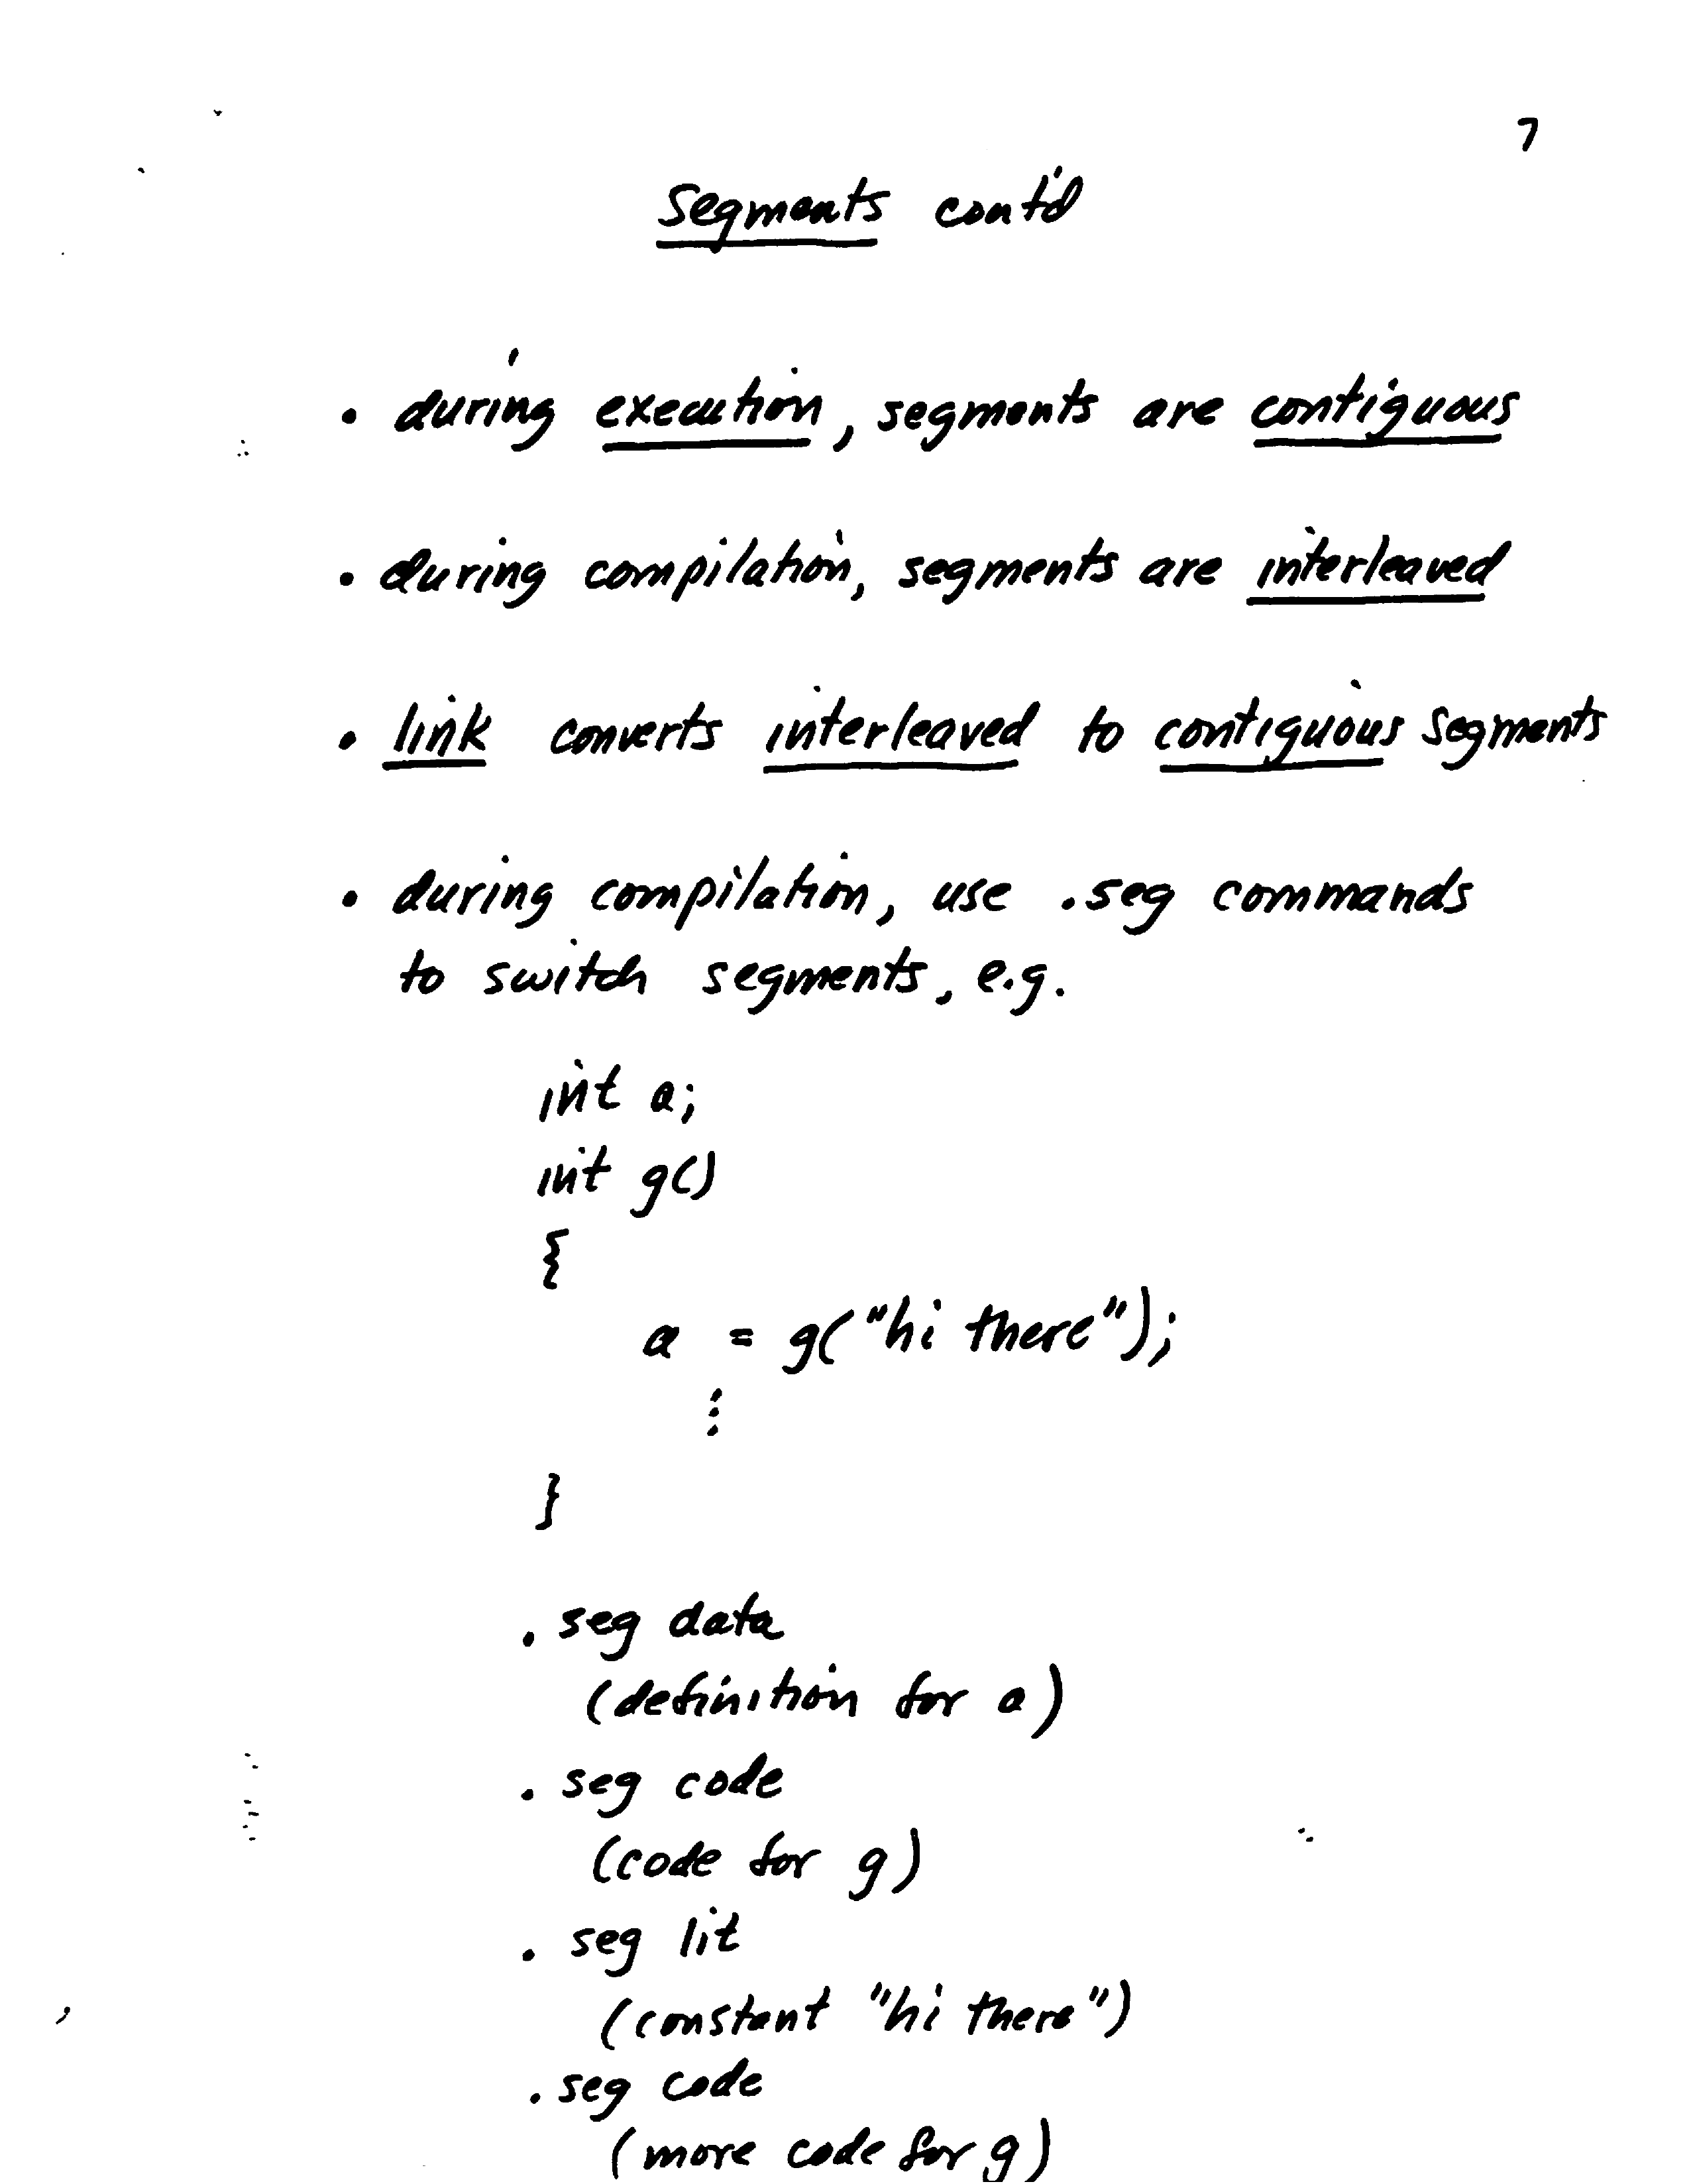 7
Segments cont'd
• during execution, segments are contiguous
• during compilation, segments are interleaved
• link converts interleaved to contiguous segments
• during compilation, use .seg commands
to switch segments, e.g.
int a;
int g()
{
a = g("hi there");
⋮
}
.seg data
(definition for a)
.seg code
(code for g)
.seg lit
(constant "hi there")
.seg code
(more code for g)